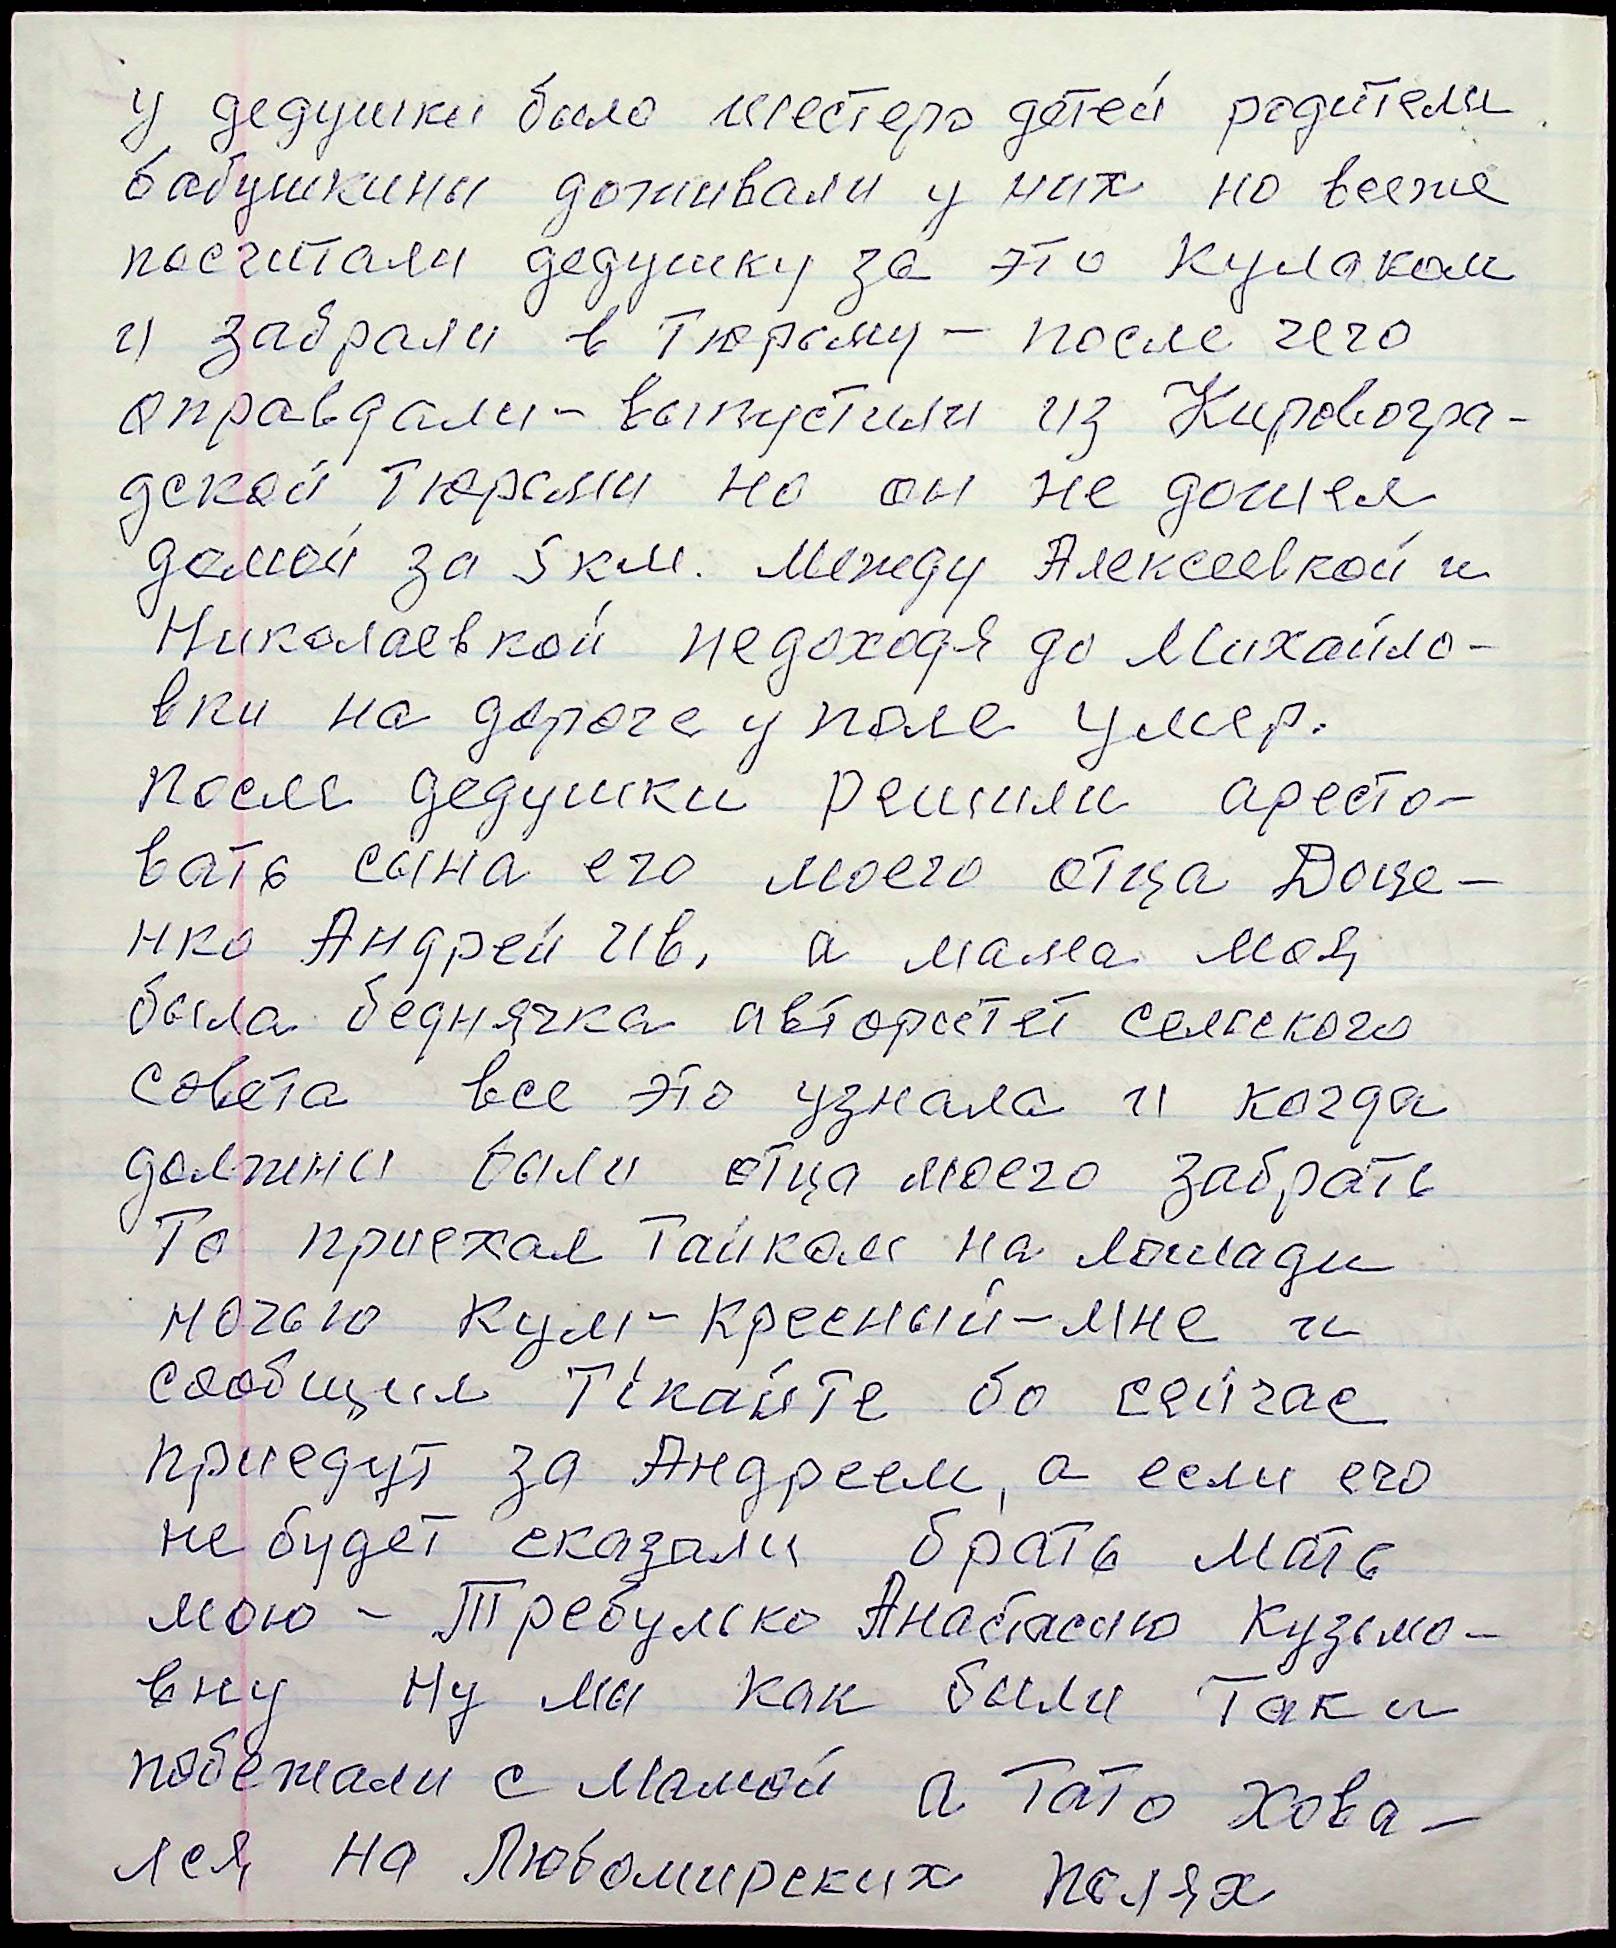 у дедушки было шестеро детей родители
бабушкины доживали у них но всеже
посчитали дедушку за это Кулаком
и забрали в Тюрьму - после чего
оправдали - выпустили из Кировогра-
дской Тюрьми но он не дошел
домой за 5 км. между Алексеевкой и
Николаевкой недоходя до Михайло-
вки на дороге у поле умер.
После дедушки решили аресто-
вать сына его моего отца Доце-
нко Андрей Ив. а мама моя
была беднячка авторитет сельского
совета все это узнала и когда
должны были отца моего забрать
То приехал Тайком на лошади
ночью Кум - Кресный - мне и
сообщил Тікайте бо сейчас
приедут за Андреем, а если его
не будет сказали брать мать
мою - Требулько Анастасию Кузьмо-
вну Ну ми как были Так и
побежали с мамой а Тато Хова-
лся на Любомирских полях